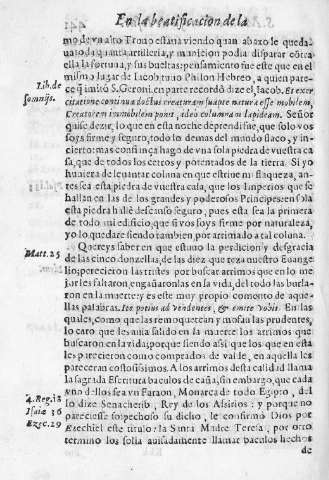 En la beatificacion de la
mo de vn alto Trono estaua viendo quan abaxo le queda
ua toda quanta artilleria, y municion podia disparar cõtra
ella la fortuna, y sus bueltas: pensamiento fue este que en el
Lib. de somnijs.
mismo lugar de Iacob, tuuo Philon Hebreo, a quien pare-
ce q̃ imitó S. Geroni. en parte recordó dize el Iacob. Et exer
citatione continua doctus creaturam suapte natura esse mobilem,
Creatorem immobilem ponit, ideò columna in lapideam. Señor
quise dezir, lo que en esta noche deprendi fue, que solo vos
soys firme y seguro, todo lo demas del mundo flaco, y in-
cierto: mas confiança hago de vna sola piedra de vuestra ca
sa, que de todos los cetros y potentados de la tierra. Si yo
huuiera de leuantar coluna en que estriue mi flaqueza, an-
tes sea esta piedra de vuestra casa, que los Imperios que se
hallan en las de los grandes y poderosos Principes: en sola
esta piedra hallé descanso seguro, pues esta sea la primera
de todo mi edificio, que si vos soys firme por naturaleza,
yo lo quedaré siendo tambien por arrimado a tal coluna.
Matt. 25
Quereys saber en que estuuo la perdicion y desgracia
de las cinco donzellas, de las diez que reza nuestro Euange
lio; perecieron las tristes por buscar arrimos que en lo me
jor les faltaron, engañaronlas en la vida, del todo las burla-
ron en la muerte: y es este muy proprio comento de aque-
llas palabras, Ite potius ad vendentes, & emite vobis. En las
quales, como que las remoquecean y mofan las prudentes,
lo caro que les auia salido en la muerte los arrimos que
buscaron en la vida; porque siendo assi que los que en esta
les parecieron como comprados de valde, en aquella les
parecieran costosissimos. A los arrimos desta calidad llama
la sagrada Escritura baculos de caña; sin embargo, que cada
4. Reg. 18
Isaiæ 36
Ezec. 29
vno dellos sea vn Faraon, Monarca de todo Egipto, del
lo dize Senacherib, Rey de los Assirios: y porque no
pareciesse sospechoso su dicho, le confirmó Dios por
Ezechiel este titulo: la Santa Madre Teresa, por otro
termino los solia auisadamente llamar baculos hechos
de